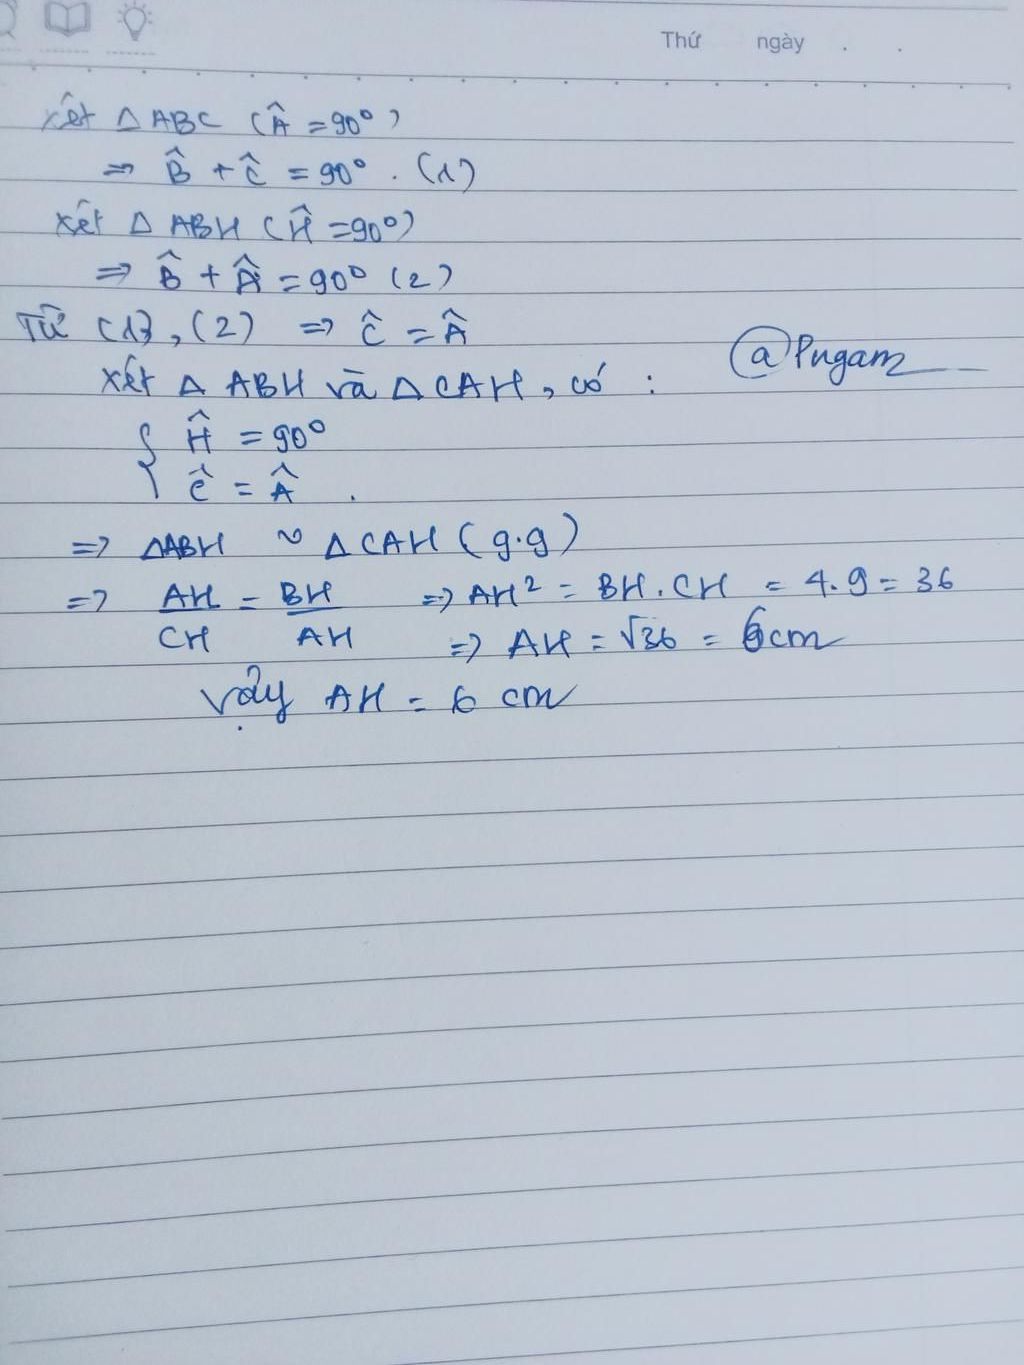 Thứ ngày . .
Xét Δ ABC (Â = 90°)
=> B̂ + Ĉ = 90° . (1)
Xét Δ ABH (Ĥ = 90°)
=> B̂ + Â = 90° (2)
Từ (1), (2) => Ĉ = Â
@Pngam
Xét Δ ABH và Δ CAH, có :
{ Ĥ = 90°
Ĉ = Â .
=> ΔABH ~ Δ CAH (g.g)
=> AH/CH = BH/AH => AH² = BH . CH = 4 . 9 = 36
=> AH = √36 = 6cm
Vậy AH = 6 cm